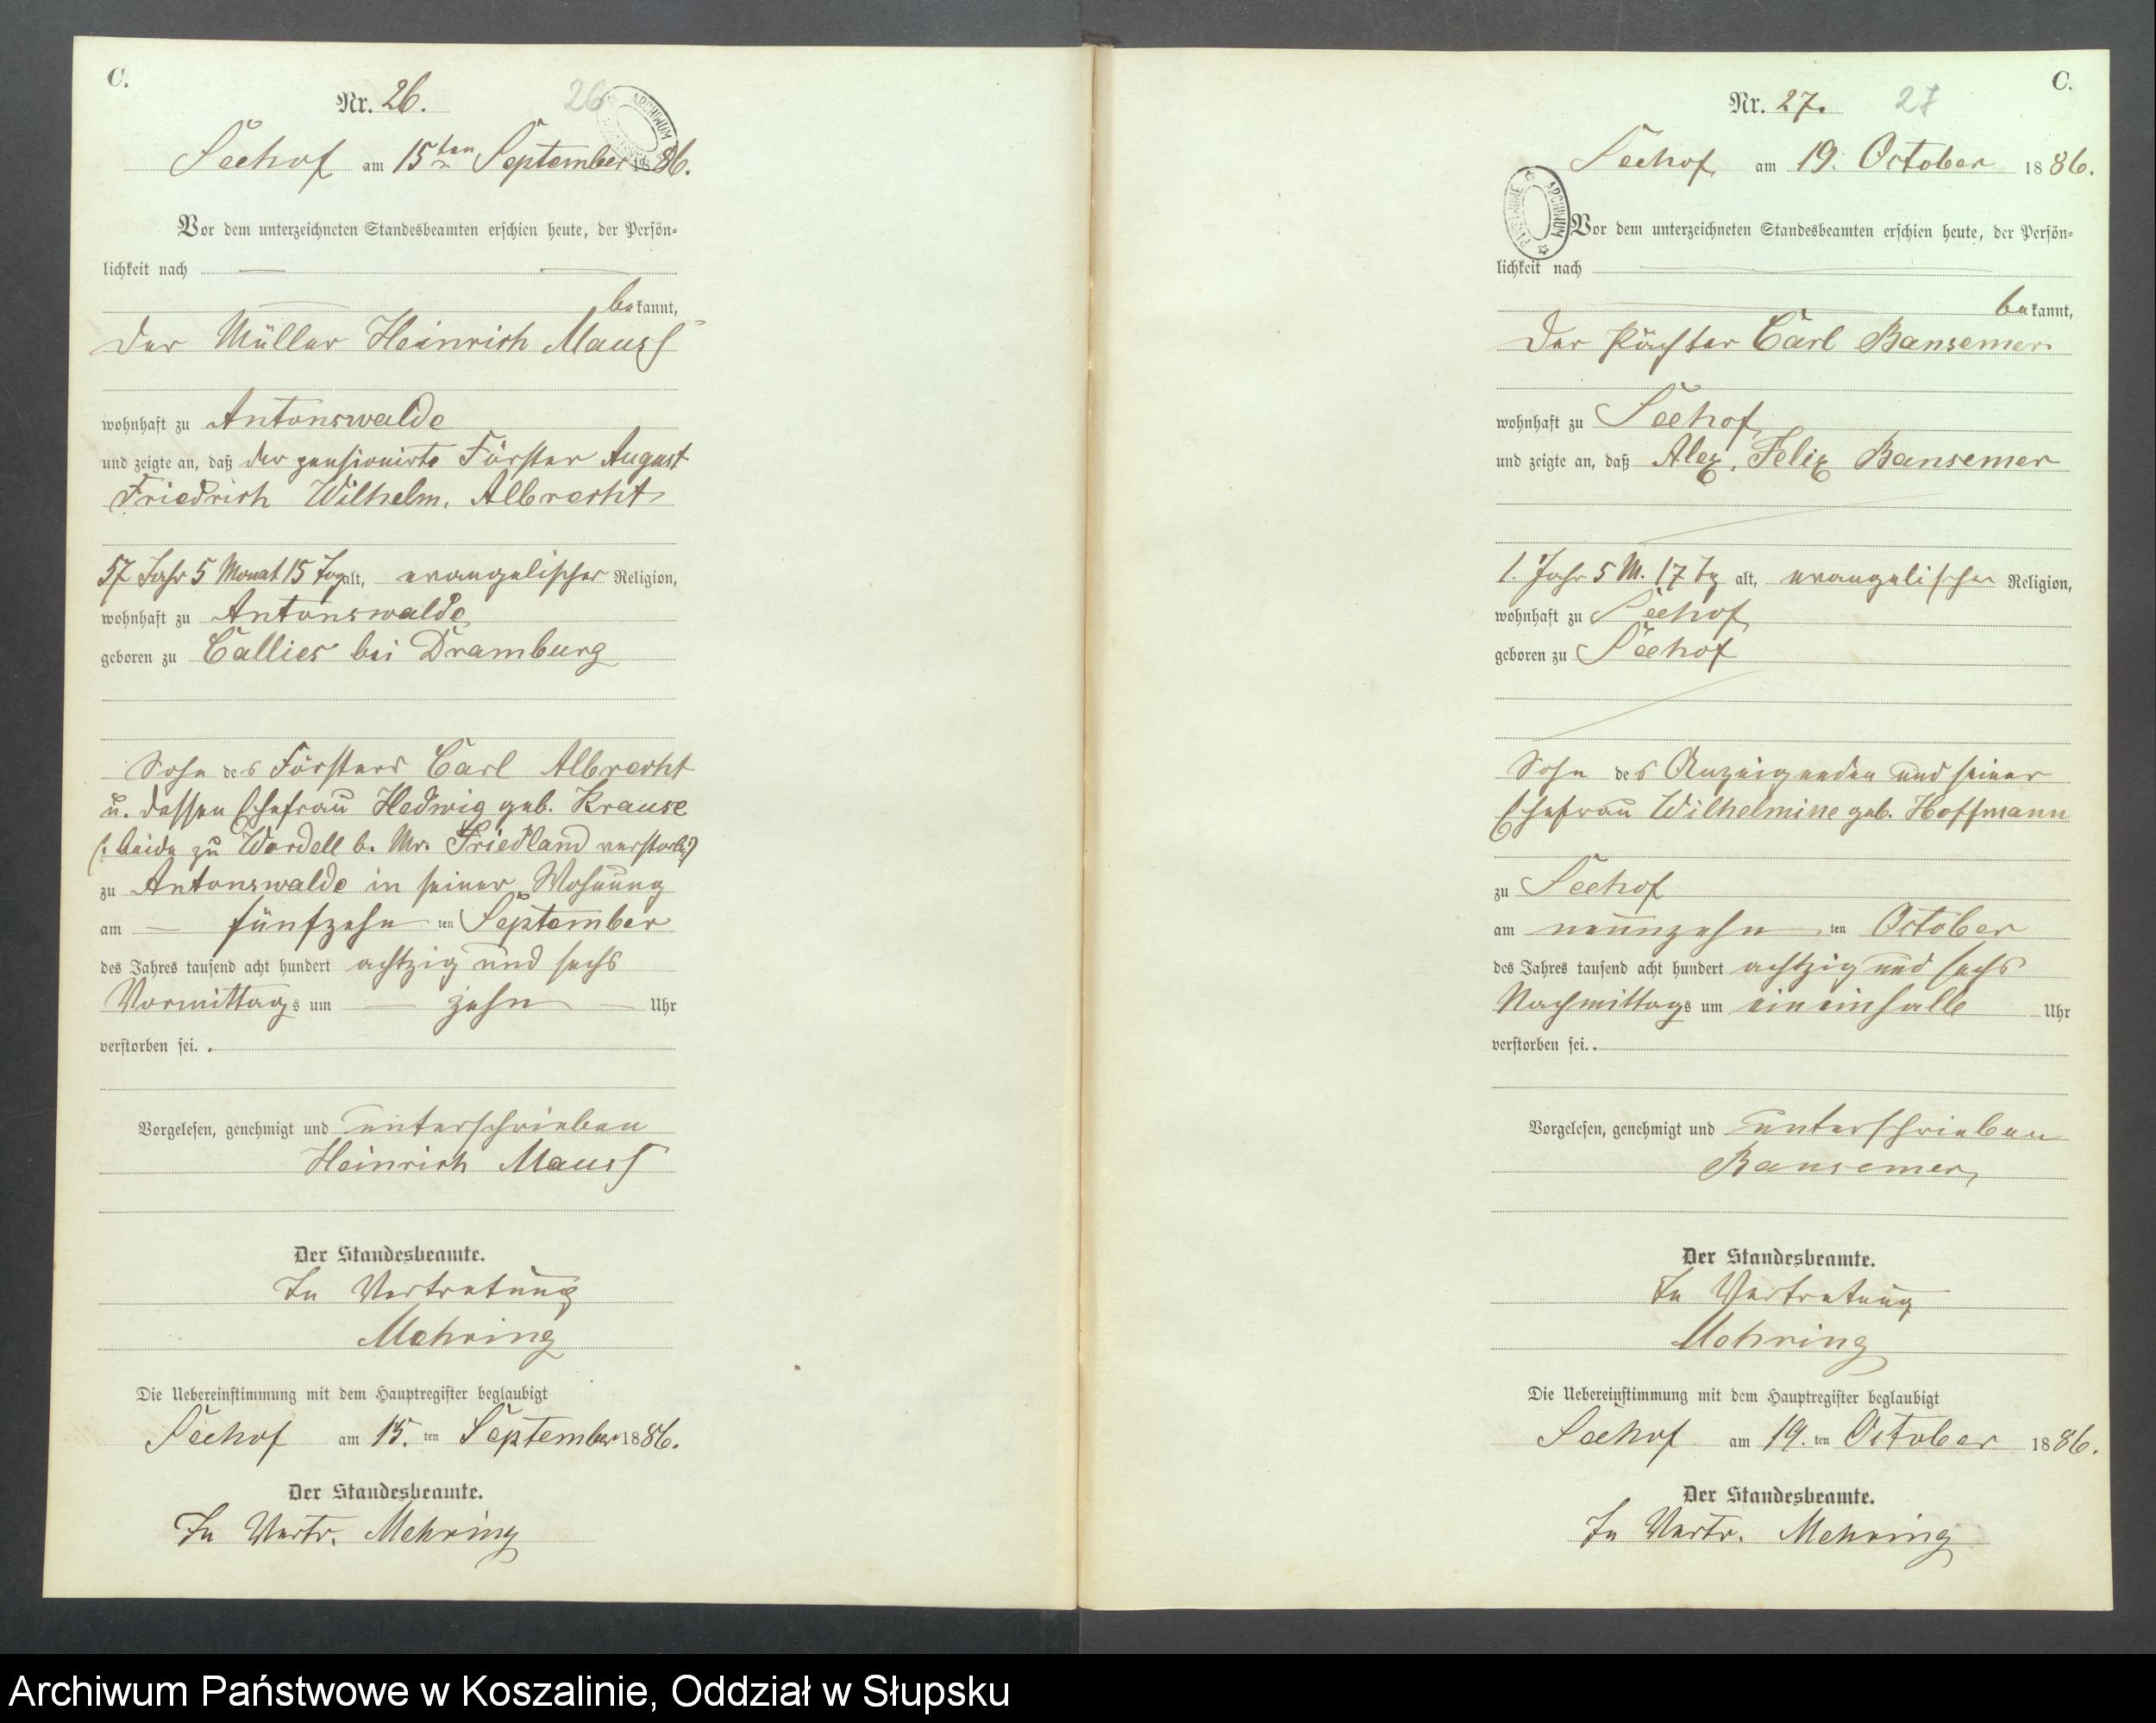 C.
Nr. 26.
26
ARCHIWUM
Seehof am 15ten September 1886.
Vor dem unterzeichneten Standesbeamten erschien heute, der Persön-
lichkeit nach
bekannt,
der Müller Heinrich Mauss
wohnhaft zu Antonswalde
und zeigte an, daß der pensionirte Förster August
Friedrich Wilhelm, Albrecht
57 Jahr 5 Monat 15 Tag alt, evangelischer Religion,
wohnhaft zu Antonswalde
geboren zu Callies bei Dramburg
Sohn des Försters Carl Albrecht
u. dessen Ehefrau Hedwig geb. Krause
(: beide zu Wordell b. Mr. Friedland verstorb:)
zu Antonswalde in seiner Wohnung
am fünfzehn ten September
des Jahres tausend acht hundert achtzig und sechs
Vormittags um zehn Uhr
verstorben sei.
Vorgelesen, genehmigt und unterschrieben
Heinrich Mauss
Der Standesbeamte.
In Vertretung
Mehring
Die Uebereinstimmung mit dem Hauptregister beglaubigt
Seehof am 15. ten September 1886.
Der Standesbeamte.
In Vertr. Mehring
C.
Nr. 27.
27
PAŃSTWOWE ARCHIWUM
Seehof am 19. October 1886.
Vor dem unterzeichneten Standesbeamten erschien heute, der Persön-
lichkeit nach
bekannt,
der Pächter Carl Bansemer
wohnhaft zu Seehof
und zeigte an, daß Alex, Felix Bansemer
1. Jahr 5 M. 17 Tg alt, evangelischer Religion,
wohnhaft zu Seehof
geboren zu Seehof
Sohn des Anzeigenden und seiner
Ehefrau Wilhelmine geb. Hoffmann
zu Seehof
am neunzehn ten October
des Jahres tausend acht hundert achtzig und sechs
Nachmittags um ein einhalb Uhr
verstorben sei.
Vorgelesen, genehmigt und unterschrieben
Bansemer,
Der Standesbeamte.
In Vertretung
Mehring
Die Uebereinstimmung mit dem Hauptregister beglaubigt
Seehof am 19. ten October 1886.
Der Standesbeamte.
In Vertr. Mehring
Archiwum Państwowe w Koszalinie, Oddział w Słupsku